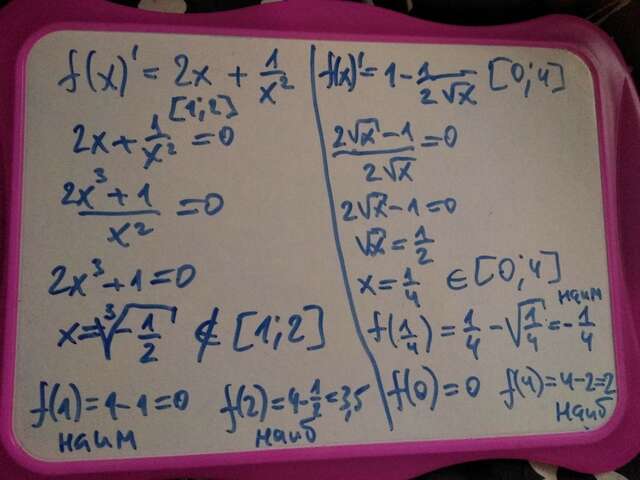 f(x)' = 2x + 1/x²
[1;2]
2x + 1/x² = 0
2x³ + 1 / x² = 0
2x³ + 1 = 0
x = ³√-1/2 ∉ [1;2]
f(1) = 1 - 1 = 0
наим
f(2) = 4 - 1/2 = 3,5
наиб
f(x)' = 1 - 1/2√x [0;4]
2√x - 1 / 2√x = 0
2√x - 1 = 0
√x = 1/2
x = 1/4 ∈ [0;4]
наим
f(1/4) = 1/4 - √1/4 = -1/4
f(0) = 0 f(4) = 4 - 2 = 2
наиб